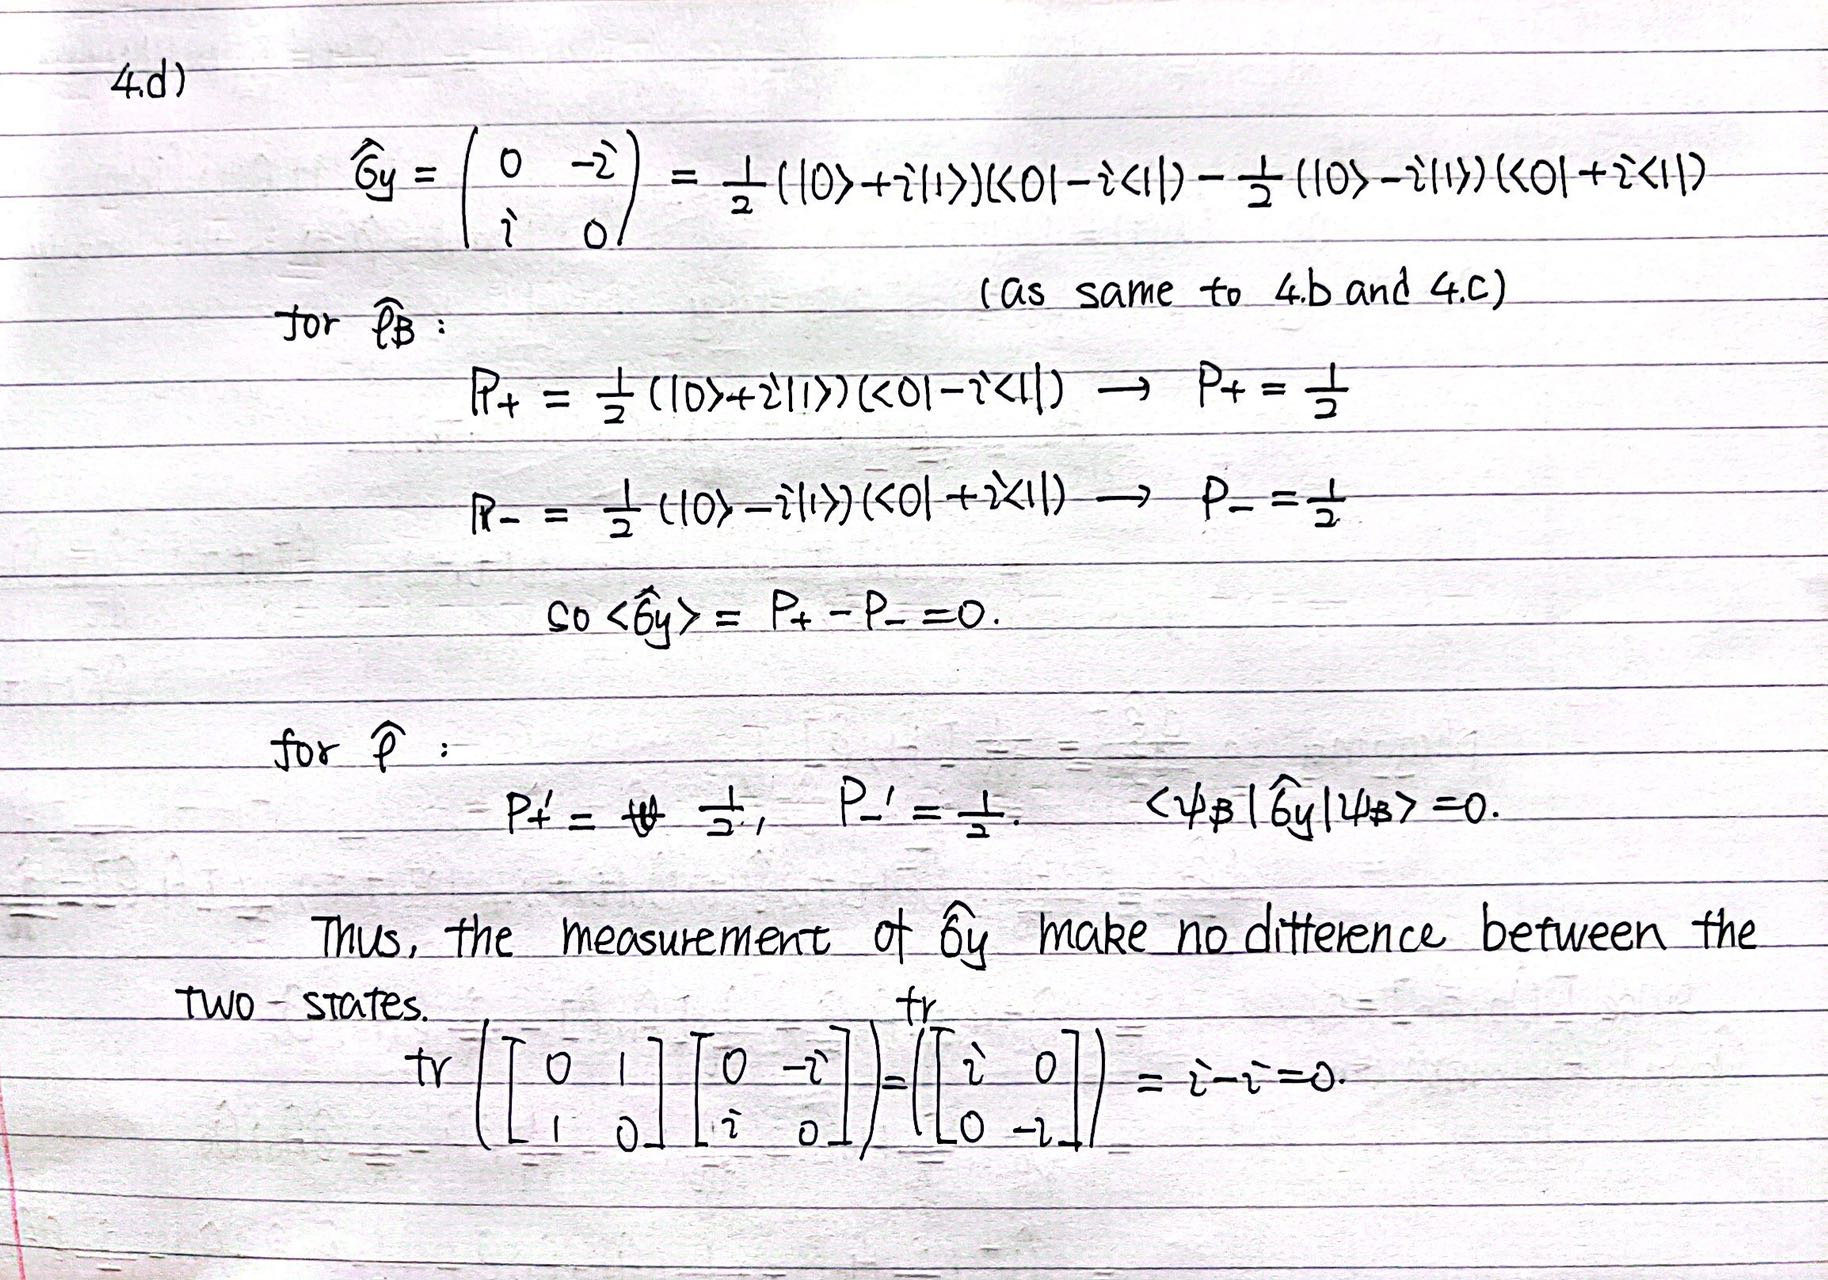 4.d)
σ̂y = ( 0 -i ; i 0 ) = 1/2 (|0>+i|1>)(<0|-i<1|) - 1/2 (|0>-i|1>)(<0|+i<1|)
(as same to 4.b and 4.c)
for ρ̂B :
P+ = 1/2 (|0>+i|1>)(<0|-i<1|) → P+ = 1/2
P- = 1/2 (|0>-i|1>)(<0|+i<1|) → P- = 1/2
so <σ̂y> = P+ - P- = 0.
for ρ̂ :
P+' = 1/2, P-' = 1/2. <ψB|σ̂y|ψB> = 0.
Thus, the measurement of σ̂y make no difference between the
two-states.
tr ( [ 0 1 ; 1 0 ] [ 0 -i ; i 0 ] ) = tr ( [ i 0 ; 0 -i ] ) = i-i=0.